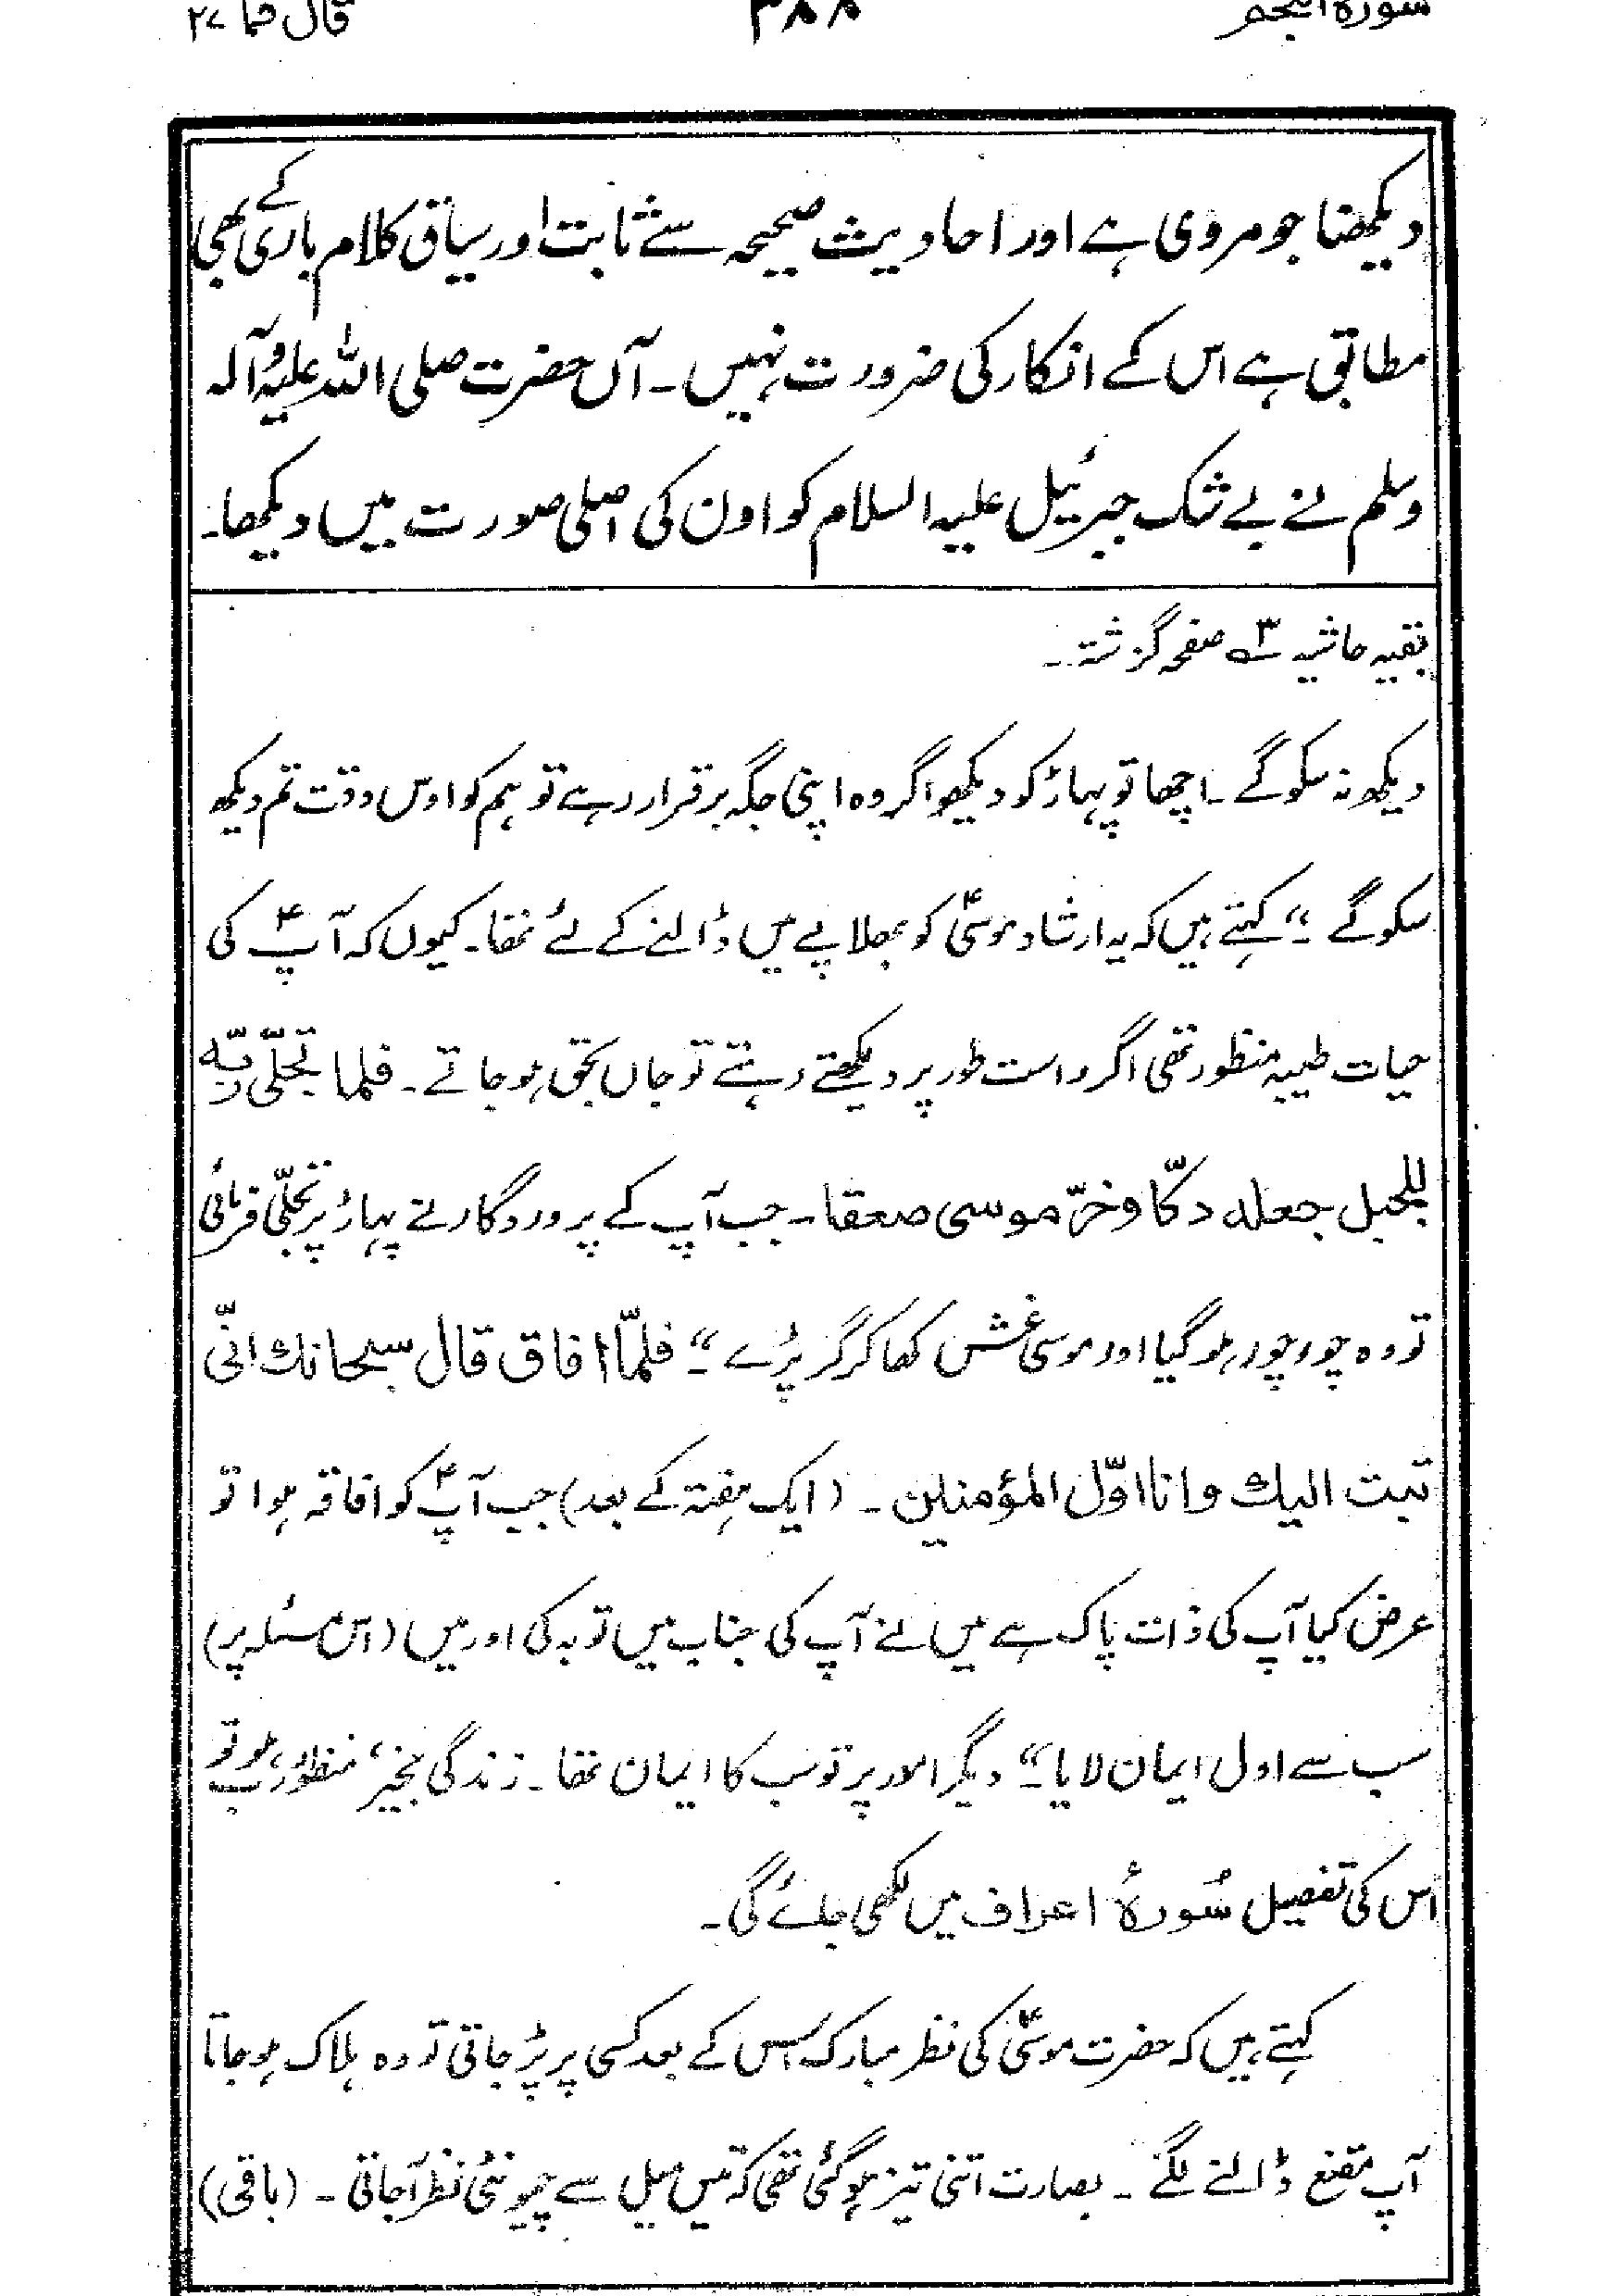 سورۃ النجم ۳۸۸ قال فما ۲۷
دیکھنا جو مروی ہے اور احادیث صحیحہ سے ثابت اور سیاق کلام باری کے بھی
مطابق ہے اس کے انکار کی ضرورت نہیں ۔ آں حضرت صلی اللہ علیہ وآلہ
وسلم نے بے شک جبرئیل علیہ السلام کو اون کی اصلی صورت میں دیکھا۔
بقیہ حاشیہ ۳ صفحہ گزشتہ ۔
دیکھ نہ سکو گے ۔ اچھا تو پہاڑ کو دیکھو اگر وہ اپنی جگہ برقرار رہے تو ہم کو اوس وقت تم دیکھ
سکو گے ۔“ کہتے ہیں کہ یہ ارشاد موسیٰؑ کو بھلاپے میں ڈالنے کے لئے تھا ۔ کیوں کہ آپؑ کی
حیات طیبہ منظور تھی اگر راست طور پر دیکھتے رہتے تو جاں بحق ہوجاتے ۔ فلما تجلّی ربّہ
للجبل جعلہ دکّا وخرّ موسی صعقا ۔ جب آپ کے پروردگار نے پہاڑ پر تجلّی فرمائی
تو وہ چور چور ہوگیا اور موسیٰ غش کھا کر گر پڑے ۔“ فلمّا افاق قال سبحانک انّی
تبت الیک وانا اوّل المؤمنین ۔ (ایک ہفتہ کے بعد) جب آپؑ کو افاقہ ہوا تو
عرض کیا آپ کی ذات پاک ہے میں نے آپ کی جناب میں توبہ کی اور میں (اس مسئلہ پر)
سب سے اول ایمان لایا ۔“ دیگر امور پر تو سب کا ایمان تھا ۔ زندگی بخیر، منظور رب ہو تو
اس کی تفصیل سُورۂ اعراف میں لکھی جائے گی ۔
کہتے ہیں کہ حضرت موسیٰؑ کی نظر مبارک اس کے بعد کسی پر پڑ جاتی تو وہ ہلاک ہوجاتا
آپ مقنع ڈالنے لگے ۔ بصارت اتنی تیز ہوگئی تھی کہ تیس میل سے چیونٹی نظر آجاتی ۔ (باقی)